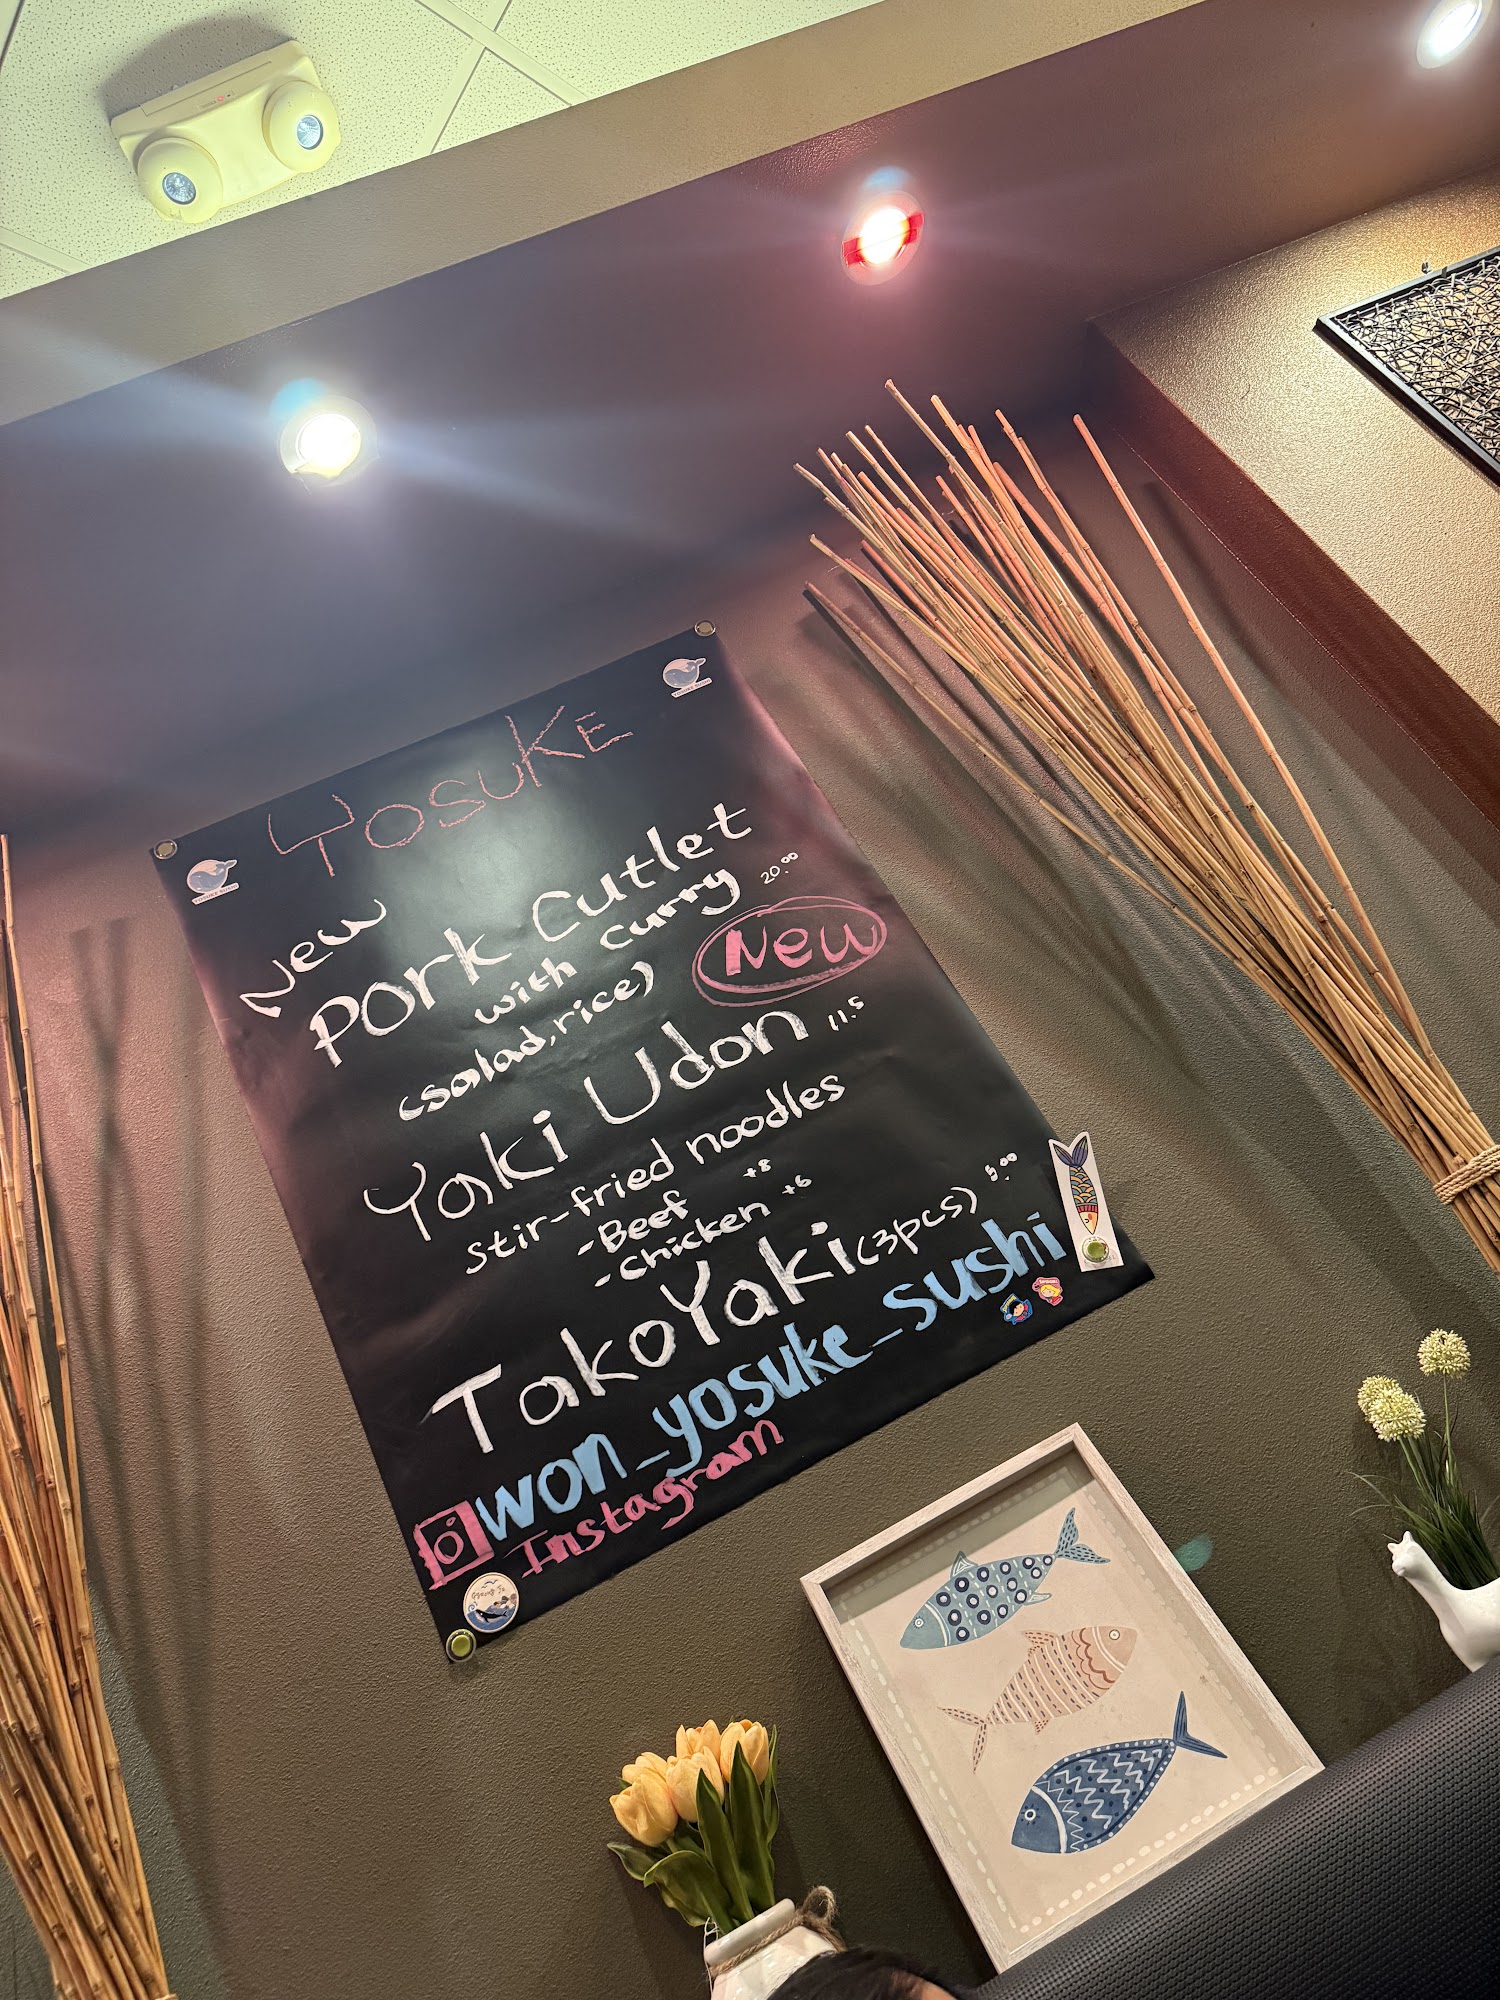 YOSUKE
New
Pork Cutlet
with curry 20.00
(salad, rice)
New
Yaki Udon 11.5
stir-fried noodles
-Beef +8
-Chicken +6
TakoYaki (3pcs)
won_yosuke_sushi
Instagram